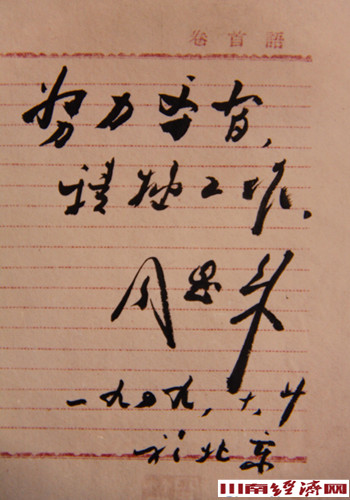 卷首語
努力学習,
積極工作、
周恩来
一九四九,十,廿
於北京
川南经濟网